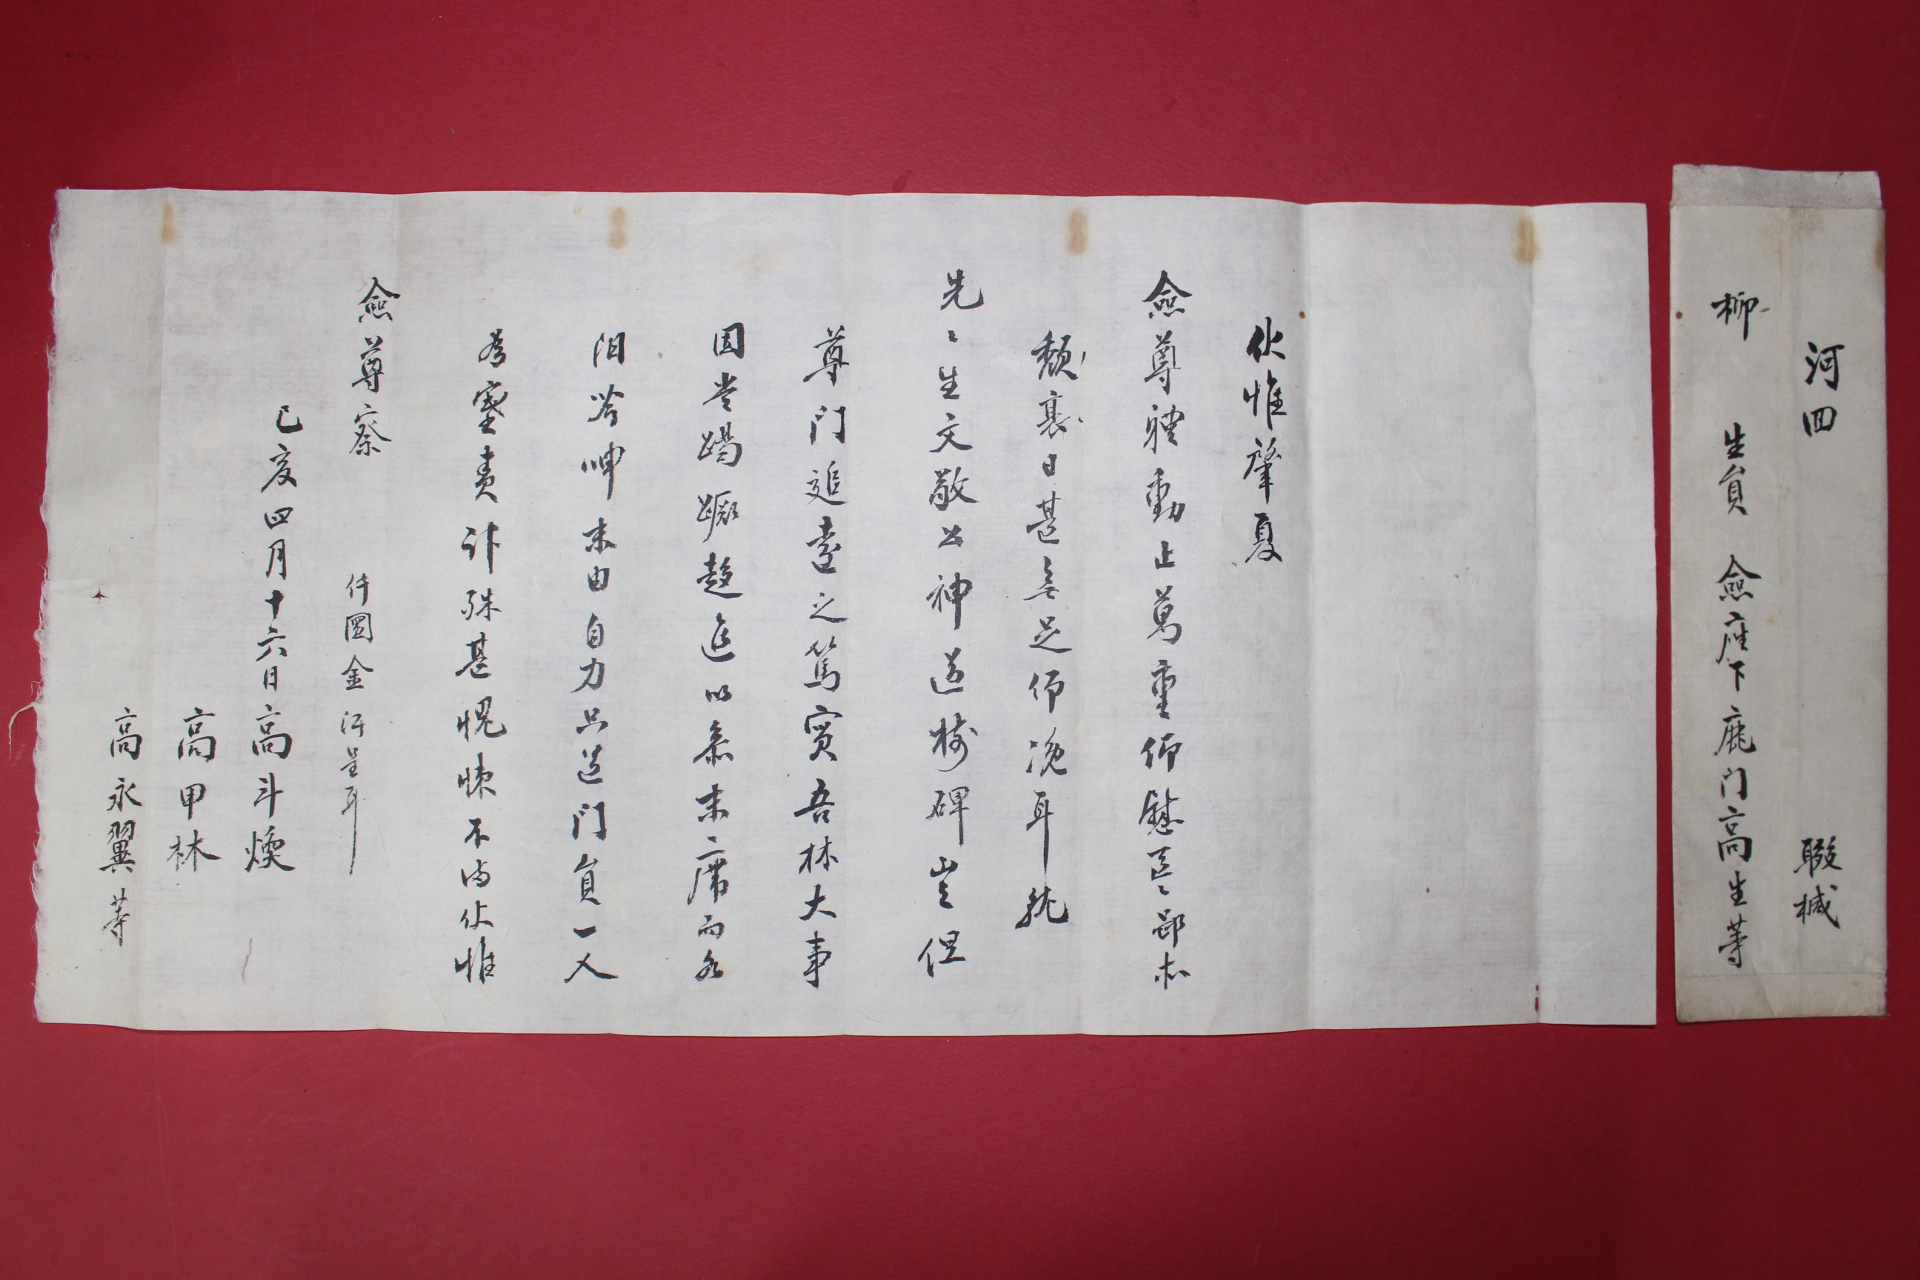 河回
柳 生員 僉座下 鹿门高生等
伏惟肇夏
僉尊體動止萬重仰慰區〻鄙等
頹衰日甚無足仰浼耳就
先〻生文敬公神道竪碑豈但
尊门追遠之篤實吾林大事
固當竭蹶趍進以參末席而各
汨岺呻末由自力只送门員一人
爲塞責計殊甚愧悚不備伏惟
僉尊察
仟圜金 汗呈耳
己亥四月十六日高斗煥
高甲林
高永翼等